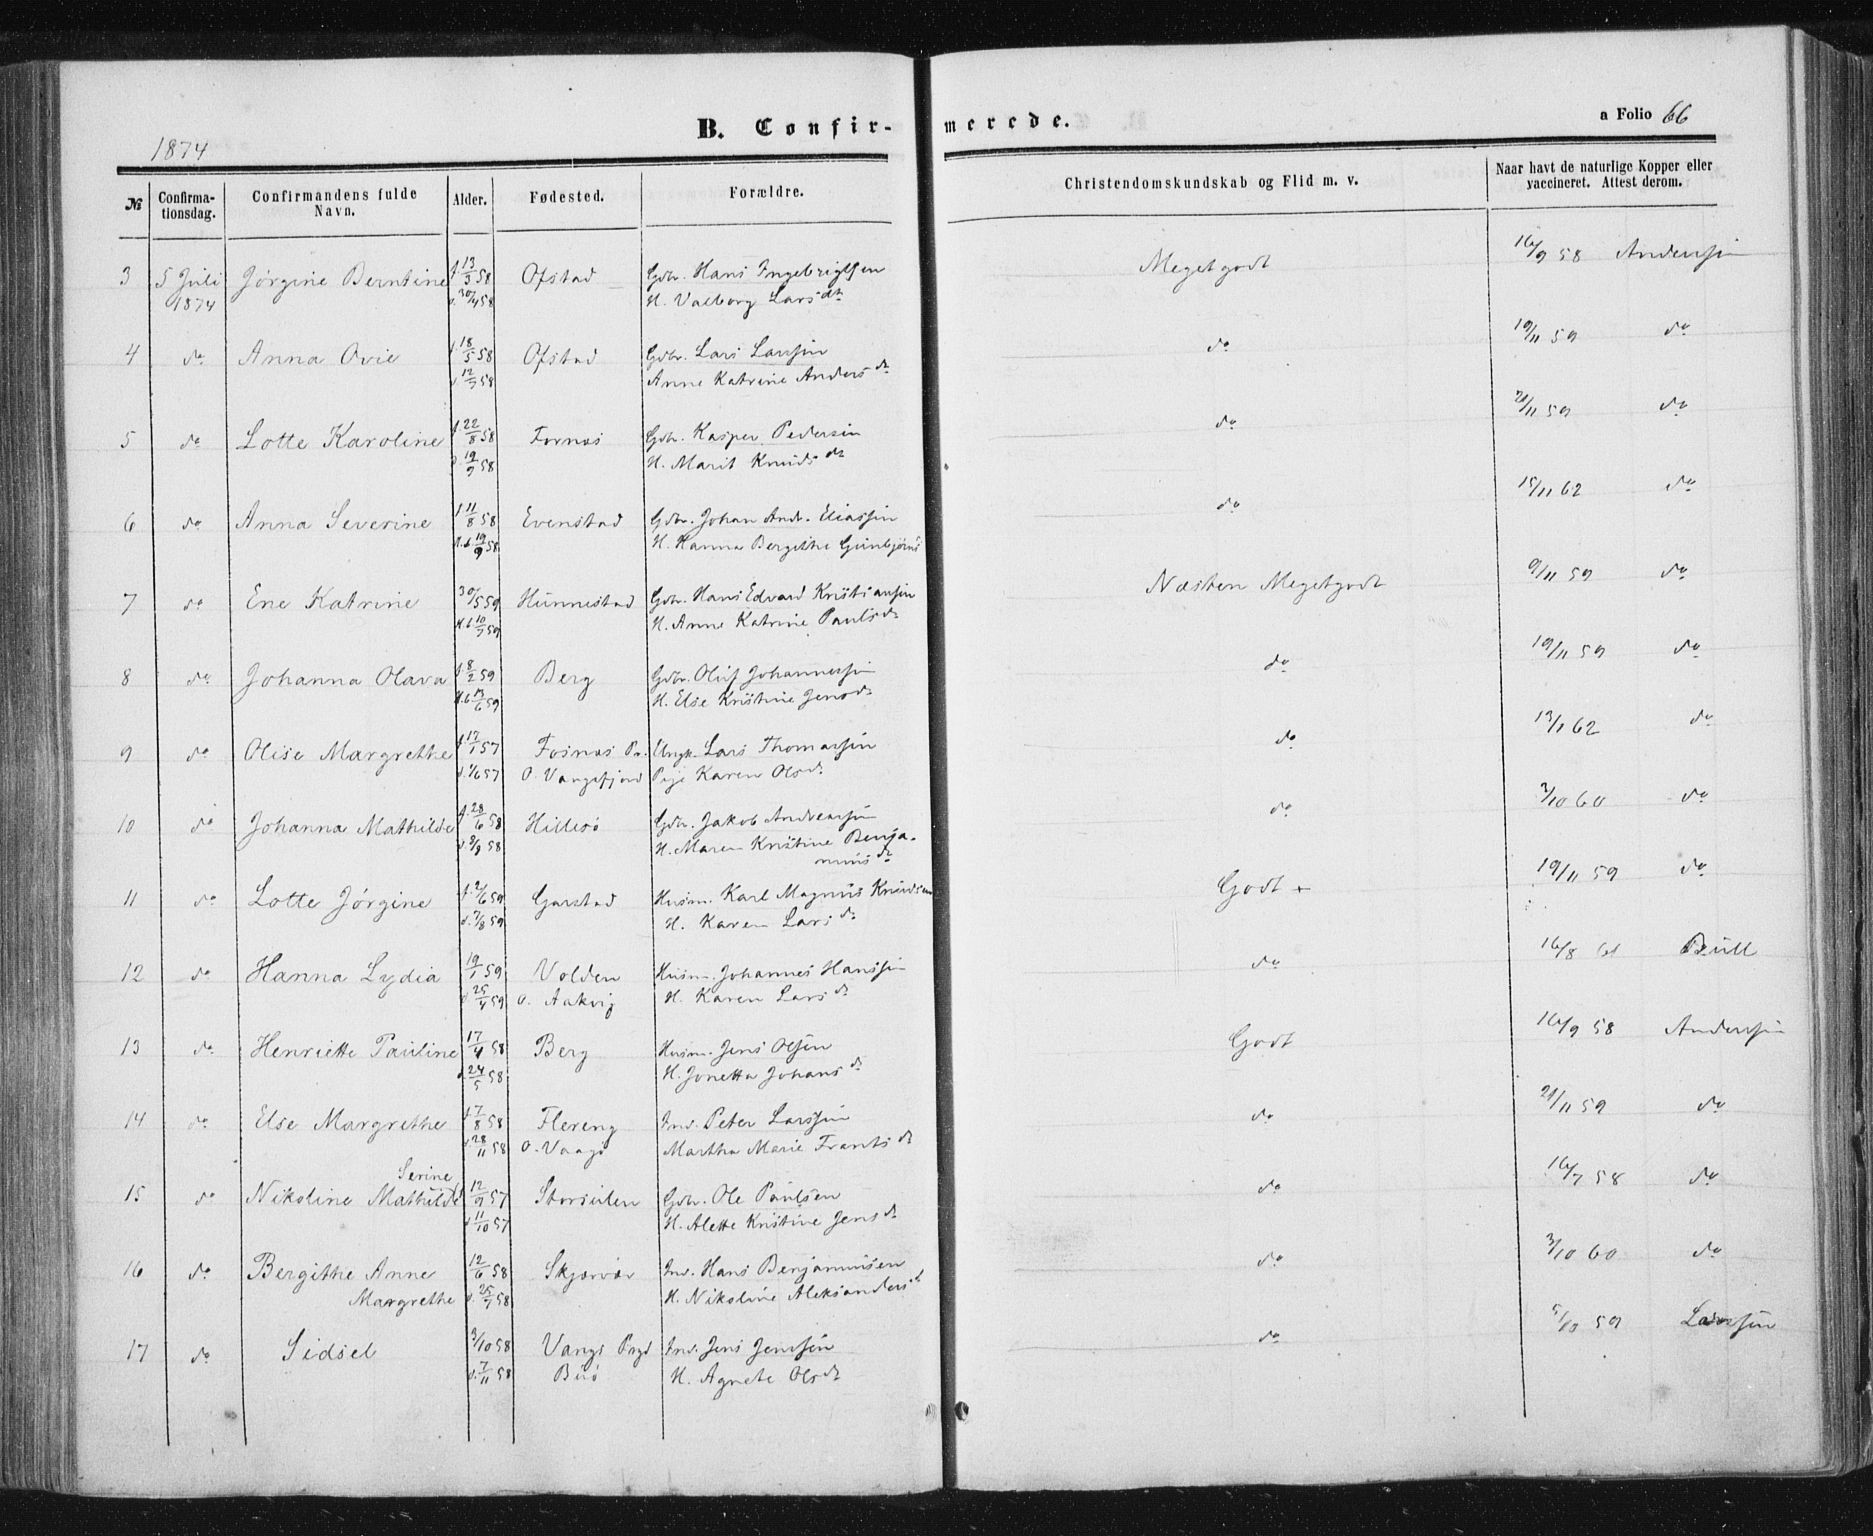 B. Confir-merede.
a Folio 66
1874
№ Confirma-tionsdag. Confirmandens fulde Navn. Alder. Fødested. Forældre. Christendomskundskab og Flid m. v. Naar havt de naturlige Kopper eller vaccineret. Attest derom.
3 5 Juli Jørgine Berntine f. 13/3 58 Ofstad Gdbr. Hans Ingebrigtsen Megetgodt 16/9 58 Anderssen
1874 d. 30/4 58 H. Valborg Larsdtr
4 do Anna Ovie f. 18/5 58 Ofstad Gdbr. Lars Larssen do 19/11 59 do
d. 12/7 58 Anne Katrine Andersdr
5 do Lotte Karoline f. 22/8 58 Fornæs Gdbr. Kasper Pedersen do 21/11 59 do
d. 19/9 58 H. Marit Knudsdr
6 do Anna Severine f. 11/8 58 Evenstad Gdbr. Johan Andr. Eliassen do 15/11 62 do
H.d. 19/9 58 H. Hanna Bergithe Gunbjørns
7 do Ene Katrine 30/5 59 Hunnestad Gdbr. Hans Edvard Kristiansen Næsten Megetgodt 9/11 59 do
H.d. 10/7 59 H. Anne Katrine Paulsdr
8 do Johanna Olava f. 8/2 59 Berg Gdbr. Oluf Johannessen do 19/11 59 do
H.d. 13/6 59 H. Else Kristine Jensdr
9 do Olise Margrethe f. 17/1 57 Fosnæs Pr. Ungk. Lars Thomassen do 13/1 62 do
d. 1/6 57 O. Vangsfjord Pige Karen Olsdr
10 do Johanna Mathilde f. 28/6 58 Hillesø Gdbr. Jakob Andreassen do 3/10 60 do
d. 8/8 58 H. Maren Kristine Benja-
minsdr
11 do Lotte Jørgine f. 2/6 59 Garstad Husm. Karl Magnus Knudsen Godt + 19/11 59 do
d. 7/8 59 H. Karen Larsdr
12 do Hanna Lydia 19/1 59 Volden Husm. Johannes Hanssen do 16/8 61 Bull
d. 25/4 59 o. Aakvig H. Karen Larsdr
13 do Henriette Pauline 17/4 58 Berg Husm. Jens Olsen Godt 16/9 58 Anderssen
d. 24/5 58 H. Jonetta Johansdr
14 do Else Margrethe f. 7/8 58 Flereng Ind. Peter Larssen do 21/11 59 do
d. 28/11 58 O. Vaagø Martha Marie Frantsdr
Serine
15 do Nikoline Mathilde 12/9 57 Storsulen Gdbr. Ole Paulsen do 16/7 58 do
d. 11/10 57 H. Alette Kristine Jensdr
16 do Bergithe Anne 12/6 58 Skjærvær Ind. Hans Benjaminsen do 3/10 60 do
Margrethe d. 25/7 58 H. Nikoline Aleksandersd
17 do Sidsel 3/10 58 Vangs Prgd Ind. Jens Jenssen do 5/10 59 Larssen
d. 7/11 58 Buø H. Agnete Olsdr